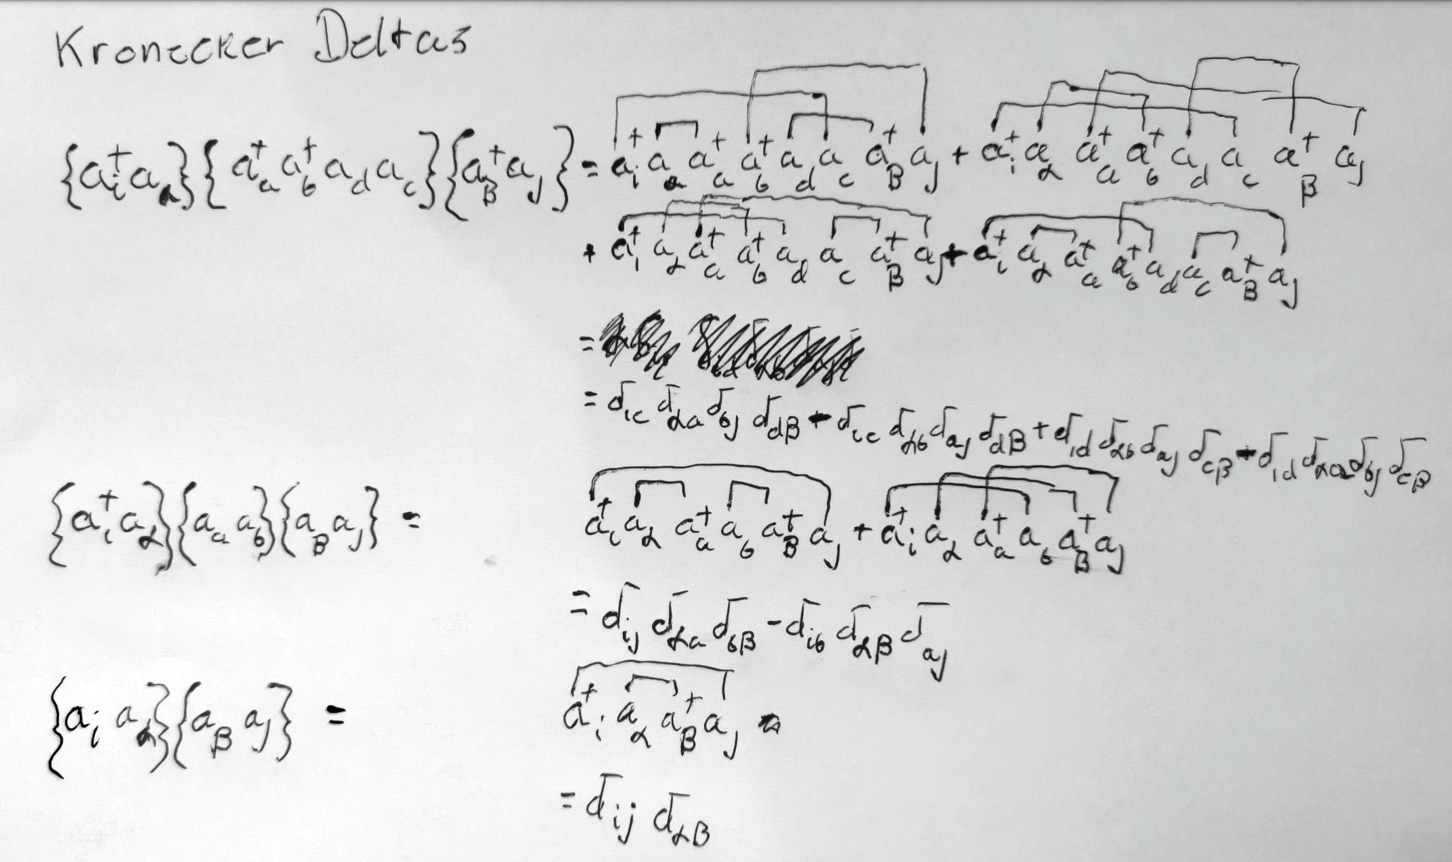 Kronecker Deltas
{a†ᵢ a_α}{a†ₐ a†_b a_d a_c}{a†_β a_j} = a†ᵢ a_α a†ₐ a†_b a_d a_c a†_β a_j + a†ᵢ a_α a†ₐ a†_b a_d a_c a†_β a_j
+ a†ᵢ a_α a†ₐ a†_b a_d a_c a†_β a_j + a†ᵢ a_α a†ₐ a†_b a_d a_c a†_β a_j
=
= δ_ic δ_αa δ_bj δ_dβ - δ_ic δ_αb δ_aj δ_dβ + δ_id δ_αb δ_aj δ_cβ - δ_id δ_αa δ_bj δ_cβ
{a†ᵢ a_α}{aₐ a_b}{a_β a_j} = a†ᵢ a_α a†ₐ a_b a†_β a_j + a†ᵢ a_α a†ₐ a_b a†_β a_j
= δ_ij δ_αa δ_bβ - δ_ib δ_αβ δ_aj
{aᵢ a_α}{a_β a_j} = a†ᵢ a_α a†_β a_j =
= δ_ij δ_αβ